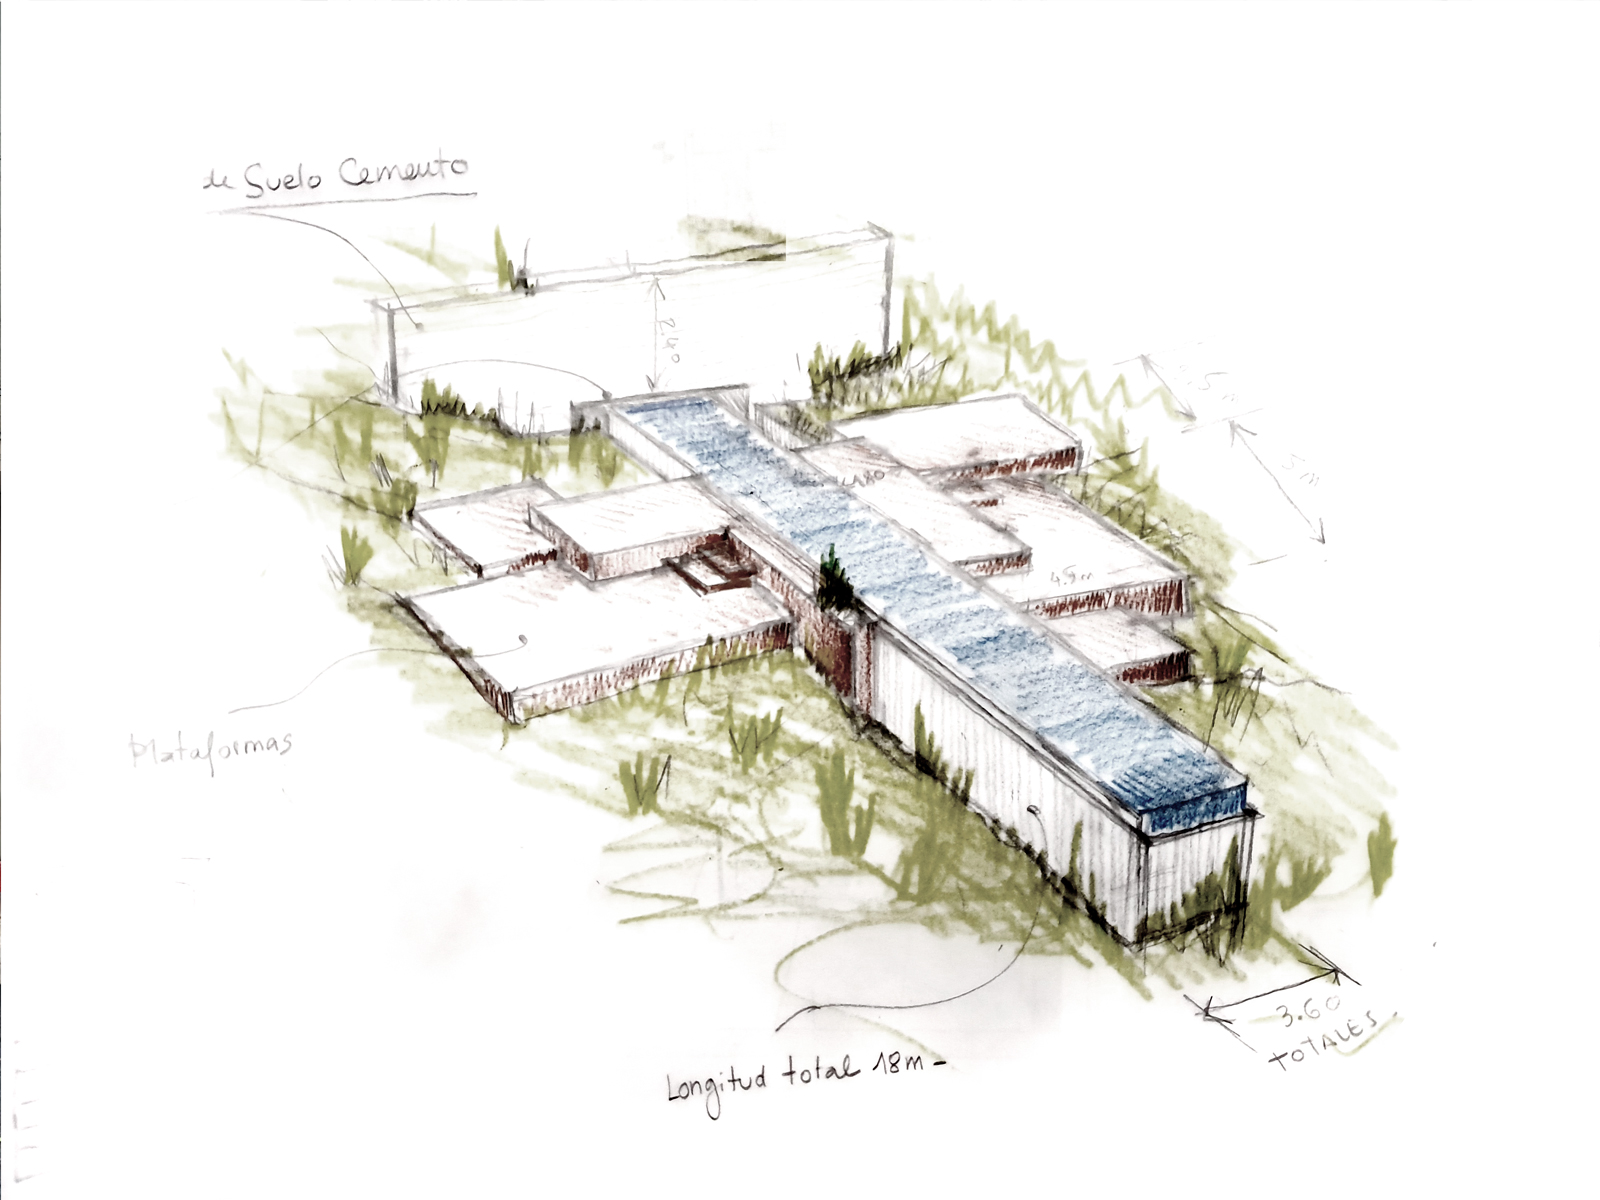 de Suelo Cemento
2.40
5m
4.5m
Plataformas
3.60
TOTALES.
Longitud total 18m-